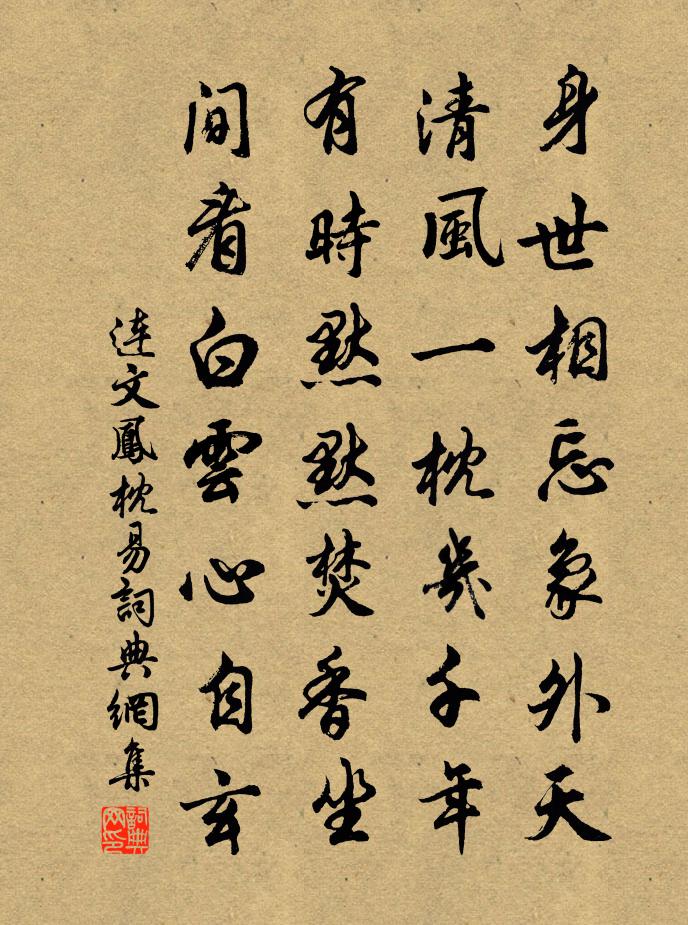 身世相忘象外天
清風一枕幾千年
有時默默焚香坐
间看白雲心自玄
連文鳳枕易詞典網集
詞典网印